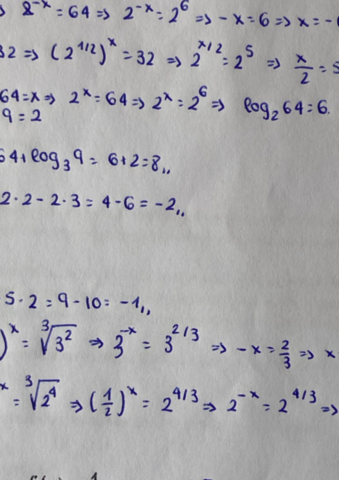 2^{-x} = 64 ⇒ 2^{-x} = 2^6 ⇒ -x = 6 ⇒ x = -6
32 ⇒ (2^{1/2})^x = 32 ⇒ 2^{x/2} = 2^5 ⇒ x/2 = 5
64 = x ⇒ 2^x = 64 ⇒ 2^x = 2^6 ⇒ log_2 64 = 6.
9 = 2
64 + log_3 9 = 6 + 2 = 8,,
2 · 2 - 2 · 3 = 4 - 6 = -2,,
5 · 2 = 9 - 10 = -1,,
)^x = ∛3^2 ⇒ 3^{-x} = 3^{2/3} ⇒ -x = 2/3 ⇒ x
x = ∛2^4 ⇒ (1/2)^x = 2^{4/3} ⇒ 2^{-x} = 2^{4/3} ⇒